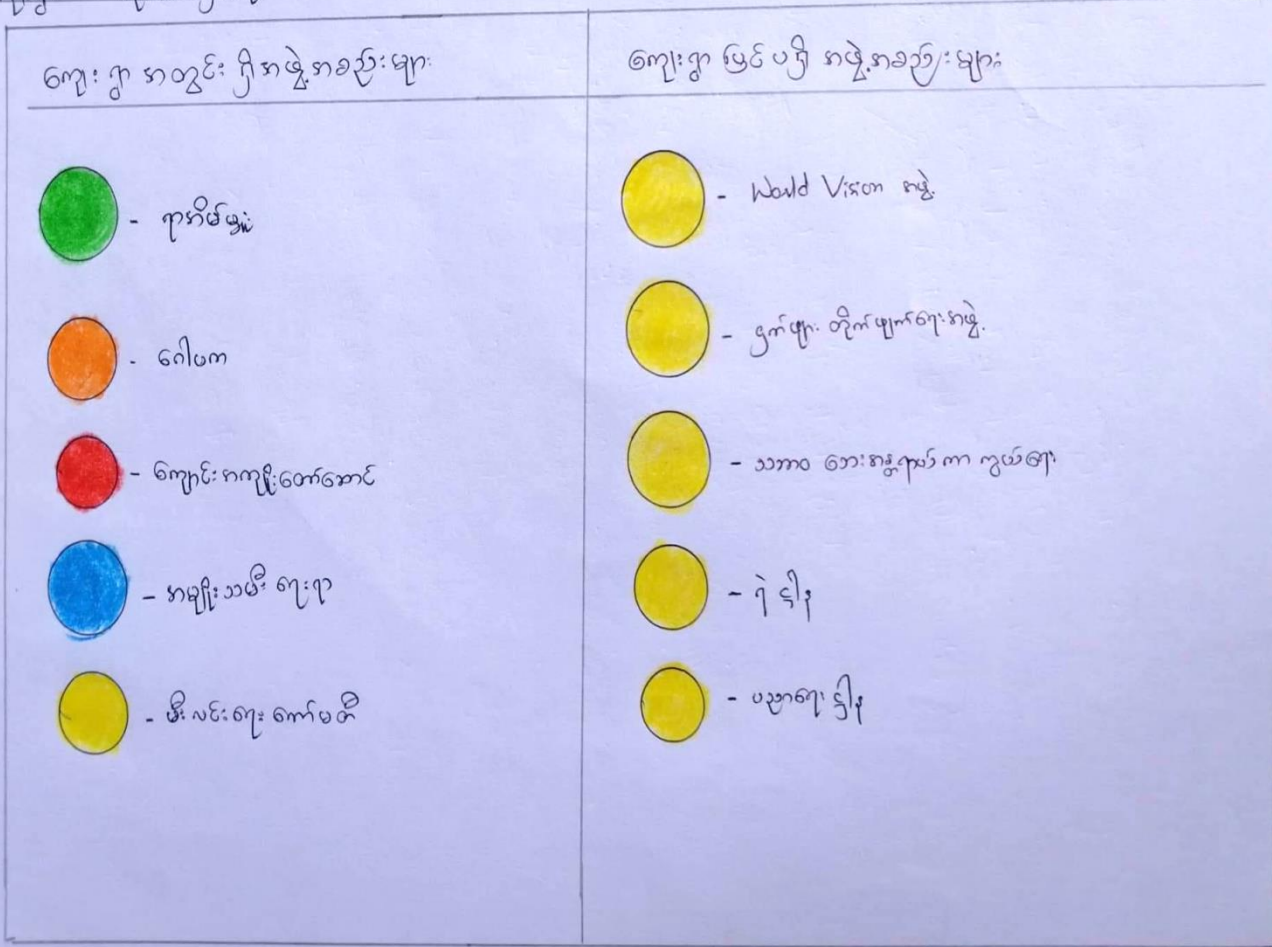 ကျေးရွာအတွင်းရှိအဖွဲ့အစည်းများ
- ရာအိမ်မှူး
- ဂေါပက
- ကျောင်းအကျိုးတော်ဆောင်
- အမျိုးသမီးရေးရာ
- မီးလင်းရေးကော်မတီ
ကျေးရွာပြင်ပရှိ အဖွဲ့အစည်းများ
- World Vision အဖွဲ့
- ငှက်ဖျား တိုက်ဖျက်ရေးအဖွဲ့
- သဘာဝ ဘေးအန္တရာယ် ကာကွယ်ရေး
- ရဲ ဌါန
- ပညာရေး ဌါန